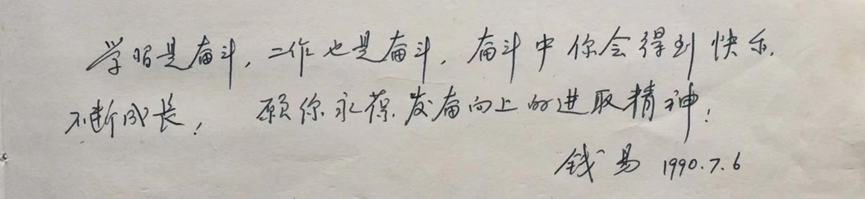 学习是奋斗，工作也是奋斗，奋斗中你会得到快乐，
不断成长！ 愿你永葆发奋向上的进取精神！
钱易 1990.7.6